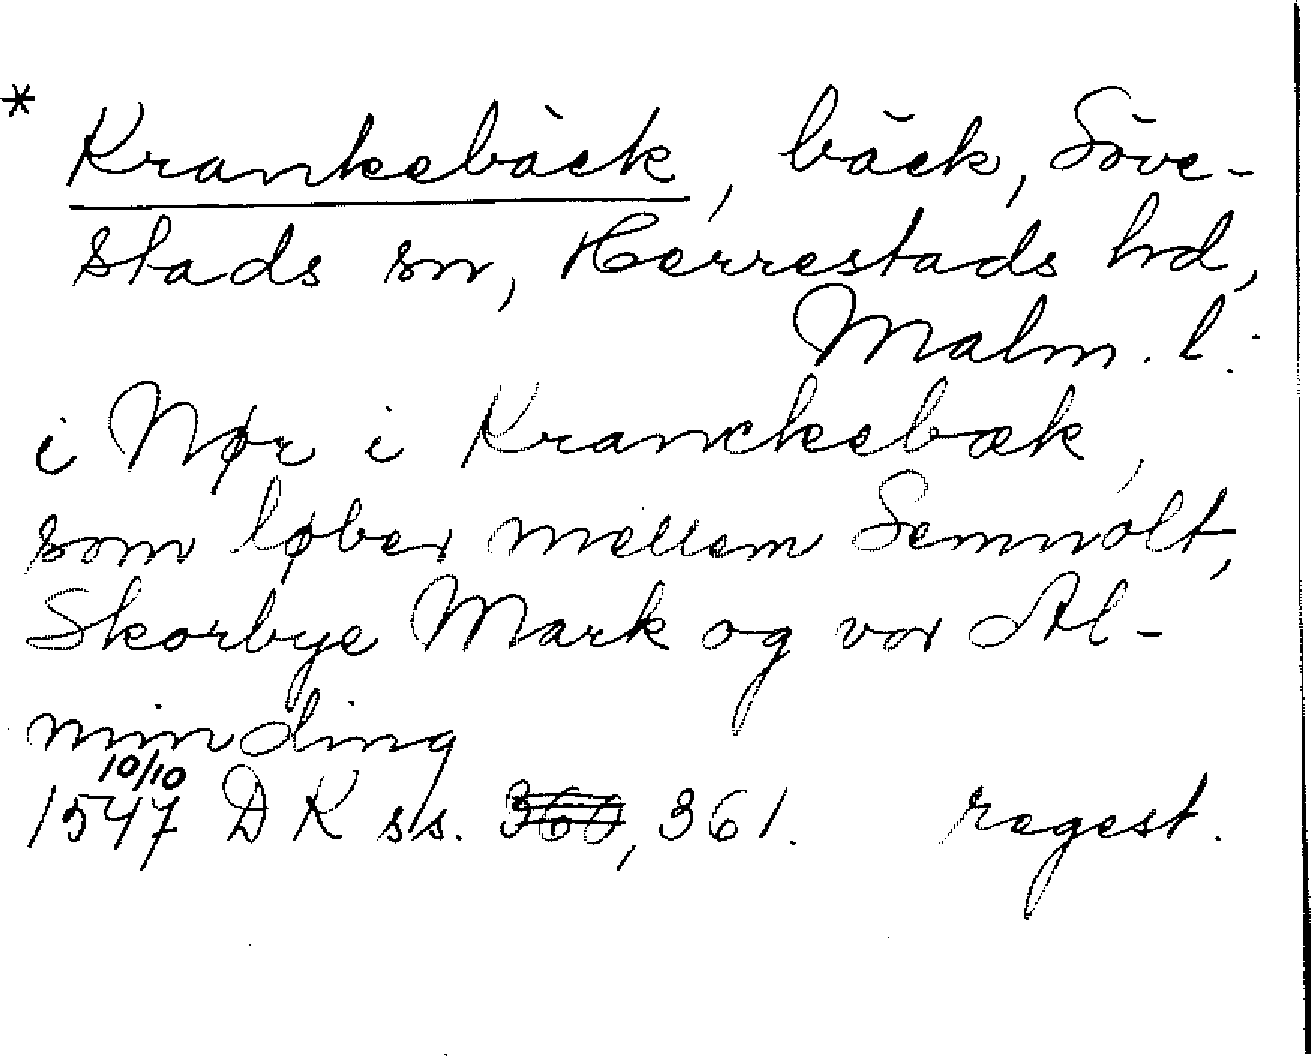 * Krankebäck, bäck, Söve-
stads sn, Herrestads hd,
Malm. l.:
i Nør i Kranckebæk,
som løber mellem Semnolt,
Skorbye Mark og vor Al-
minding
10/10
1547 DK ss. 360, 361. regest.